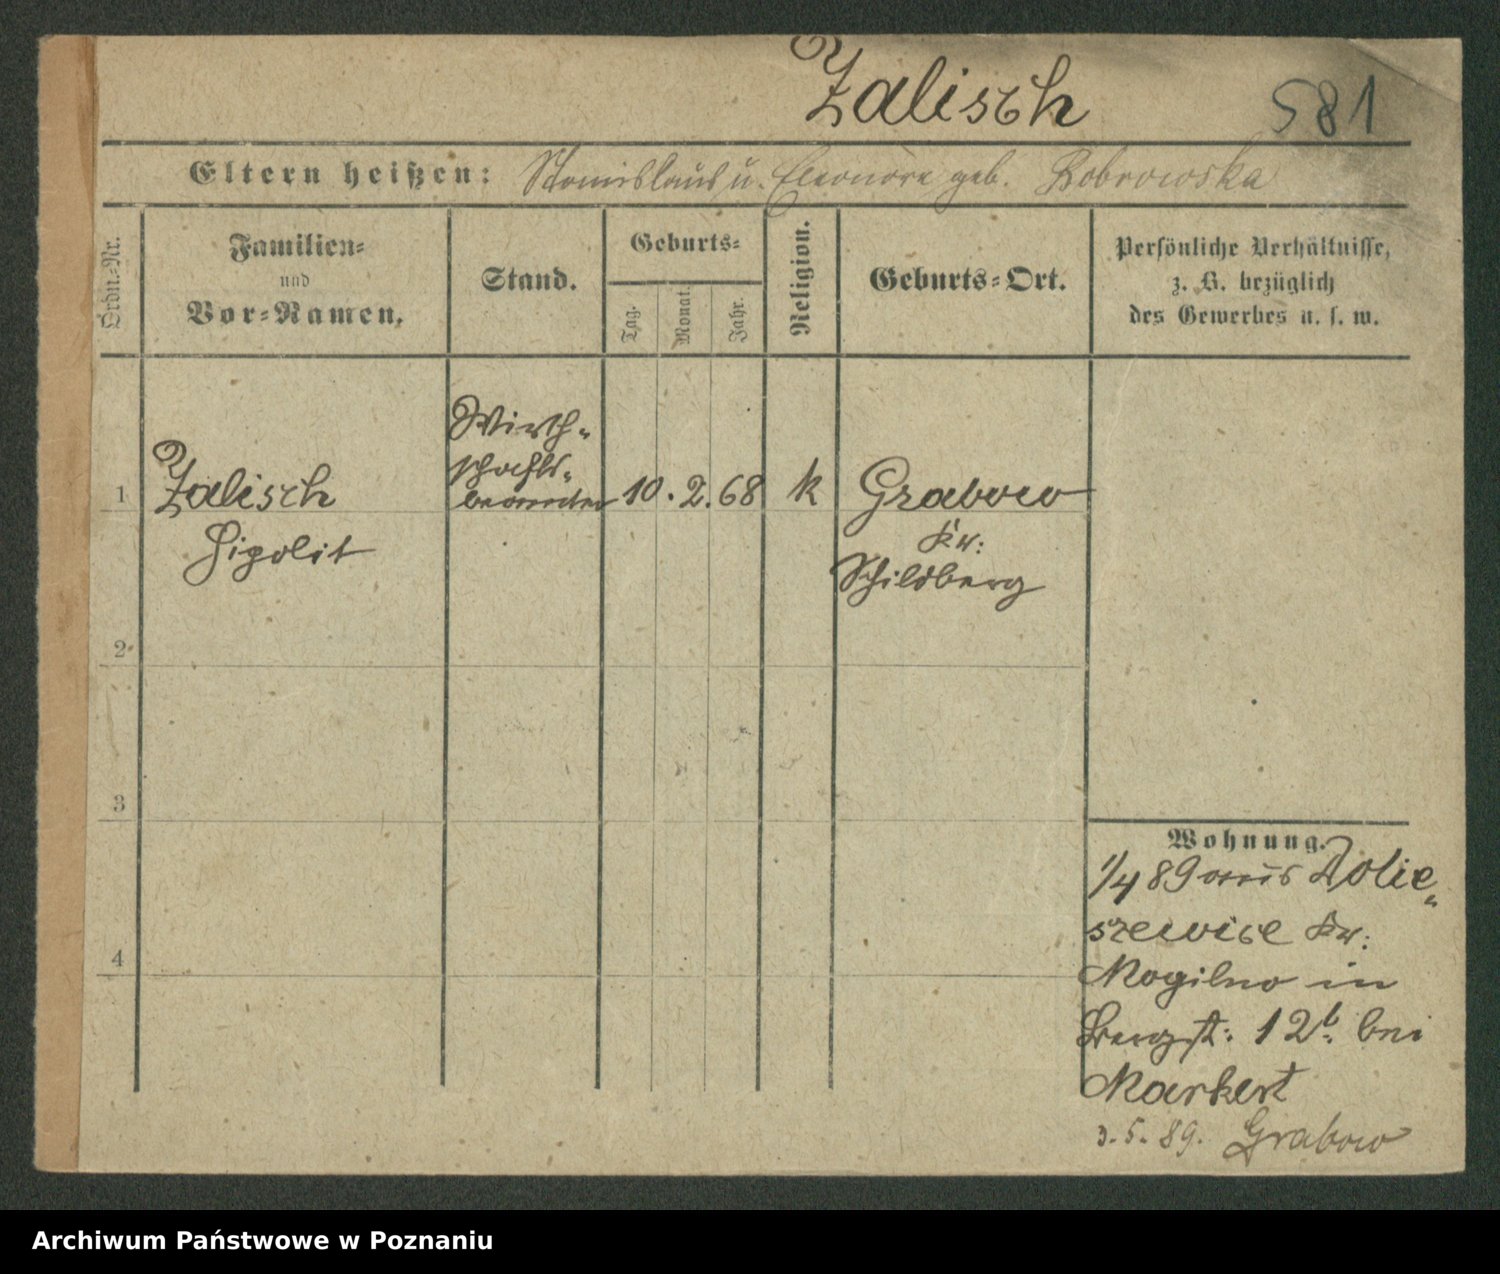 Zalisch
581
Eltern heißen: Stanislaus u. Eleonore geb. Bobrowska
Ordn.-Nr.
Familien-
und
Vor-Namen.
Stand.
Geburts-
Tag.
Monat.
Jahr.
Religion.
Geburts-Ort.
Persönliche Verhältnisse,
z. B. bezüglich
des Gewerbes u. s. w.
Wirth-
schafts-
beamter
1 Zalisch 10. 2. 68 k Grabow
Hipolit
Kr:
Schildberg
2
3
4
Wohnung.
1/4 89 aus
szewice Kr:
Mogilno in
Bergst: 12b. bei
Markert
3. 5. 89. Grabow
Archiwum Państwowe w Poznaniu